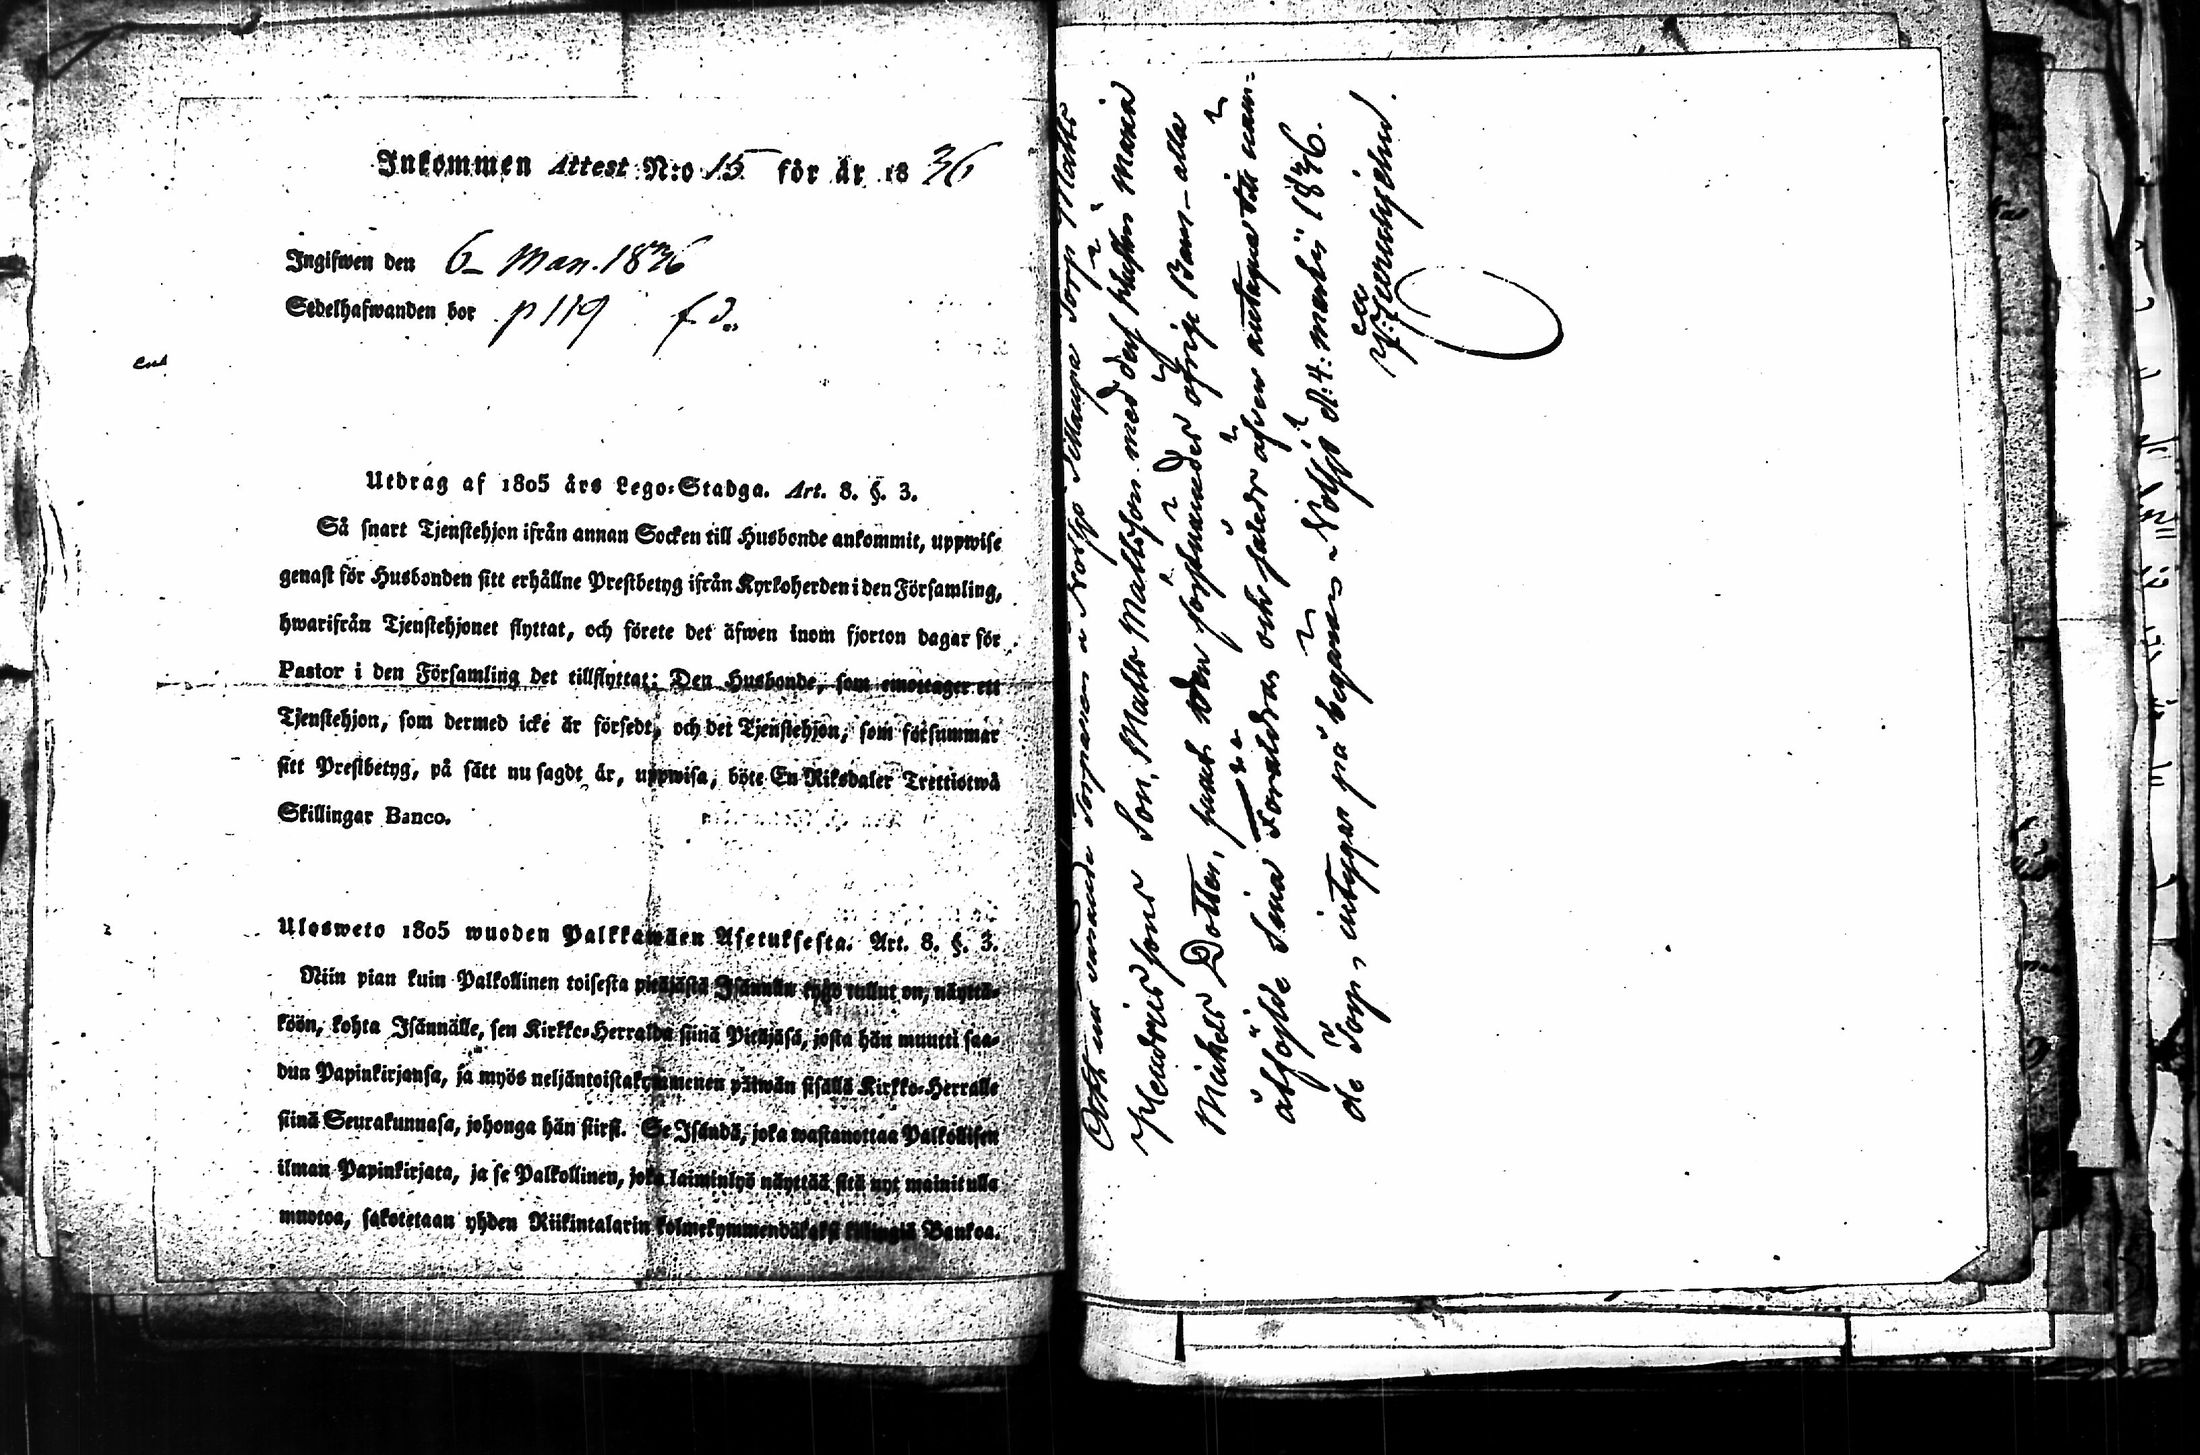 Inkommen Attest N:o 15 för år 1836
Ingifwen den 6 Mar. 1836
Sedelhafwanden bor p 119
Utdrag af 1805 års Lego-Stadga. Art. 8. §. 3.
Så snart Tjenstehjon ifrån annan Socken till Husbonde ankommit, uppwise
genast för Husbonden sitt erhållne Prestbetyg ifrån Kyrkoherden i den Församling,
hwarifrån Tjenstehjonet flyttat, och förete det äfwen inom fjorton dagar för
Pastor i den Församling det tillflyttat: Den Husbonde, som emottager ett
Tjenstehjon, som dermed icke är försedt, och det Tjenstehjon, som försummar
sitt Prestbetyg, på sätt nu sagdt är, uppwisa, böte En Riksdaler Trettiotwå
Skillingar Banco.
Ulosweto 1805 wuoden Palkkawäen Asetuksesta. Art. 8. §. 3.
Niin pian kuin Palkollinen toisesta pitäjästä Isännän tygö tullut on, näyttä-
köön, kohta Isännälle, sen Kirkko-Herralda siinä Pitäjäsä, josta hän muutti saa-
dun Papinkirjansa, ja myös neljäntoistakymmenen päiwän sisällä Kirkko-Herralle
siinä Seurakunnasa, johonga hän siirsi. Se Isändä, joka wastanottaa Palkollisen
ilman Papinkirjata, ja se Palkollinen, joka laiminlyö näyttää sitä nyt mainitulla
muotoa, sakotetaan yhden Riikintalarin kolmekymmendäkaksi killingiä Bankoa.
Att nu varande Torparen å Torp Matts
Hendricssons Son, Matts Mattsson med dess hustru Maria
Michels Dotter, samt den öfrige Barn alla
åtföljde sina Föräldrar och äfven antagna till
de Torp, intygar på begäran d: 4: martii 1836.